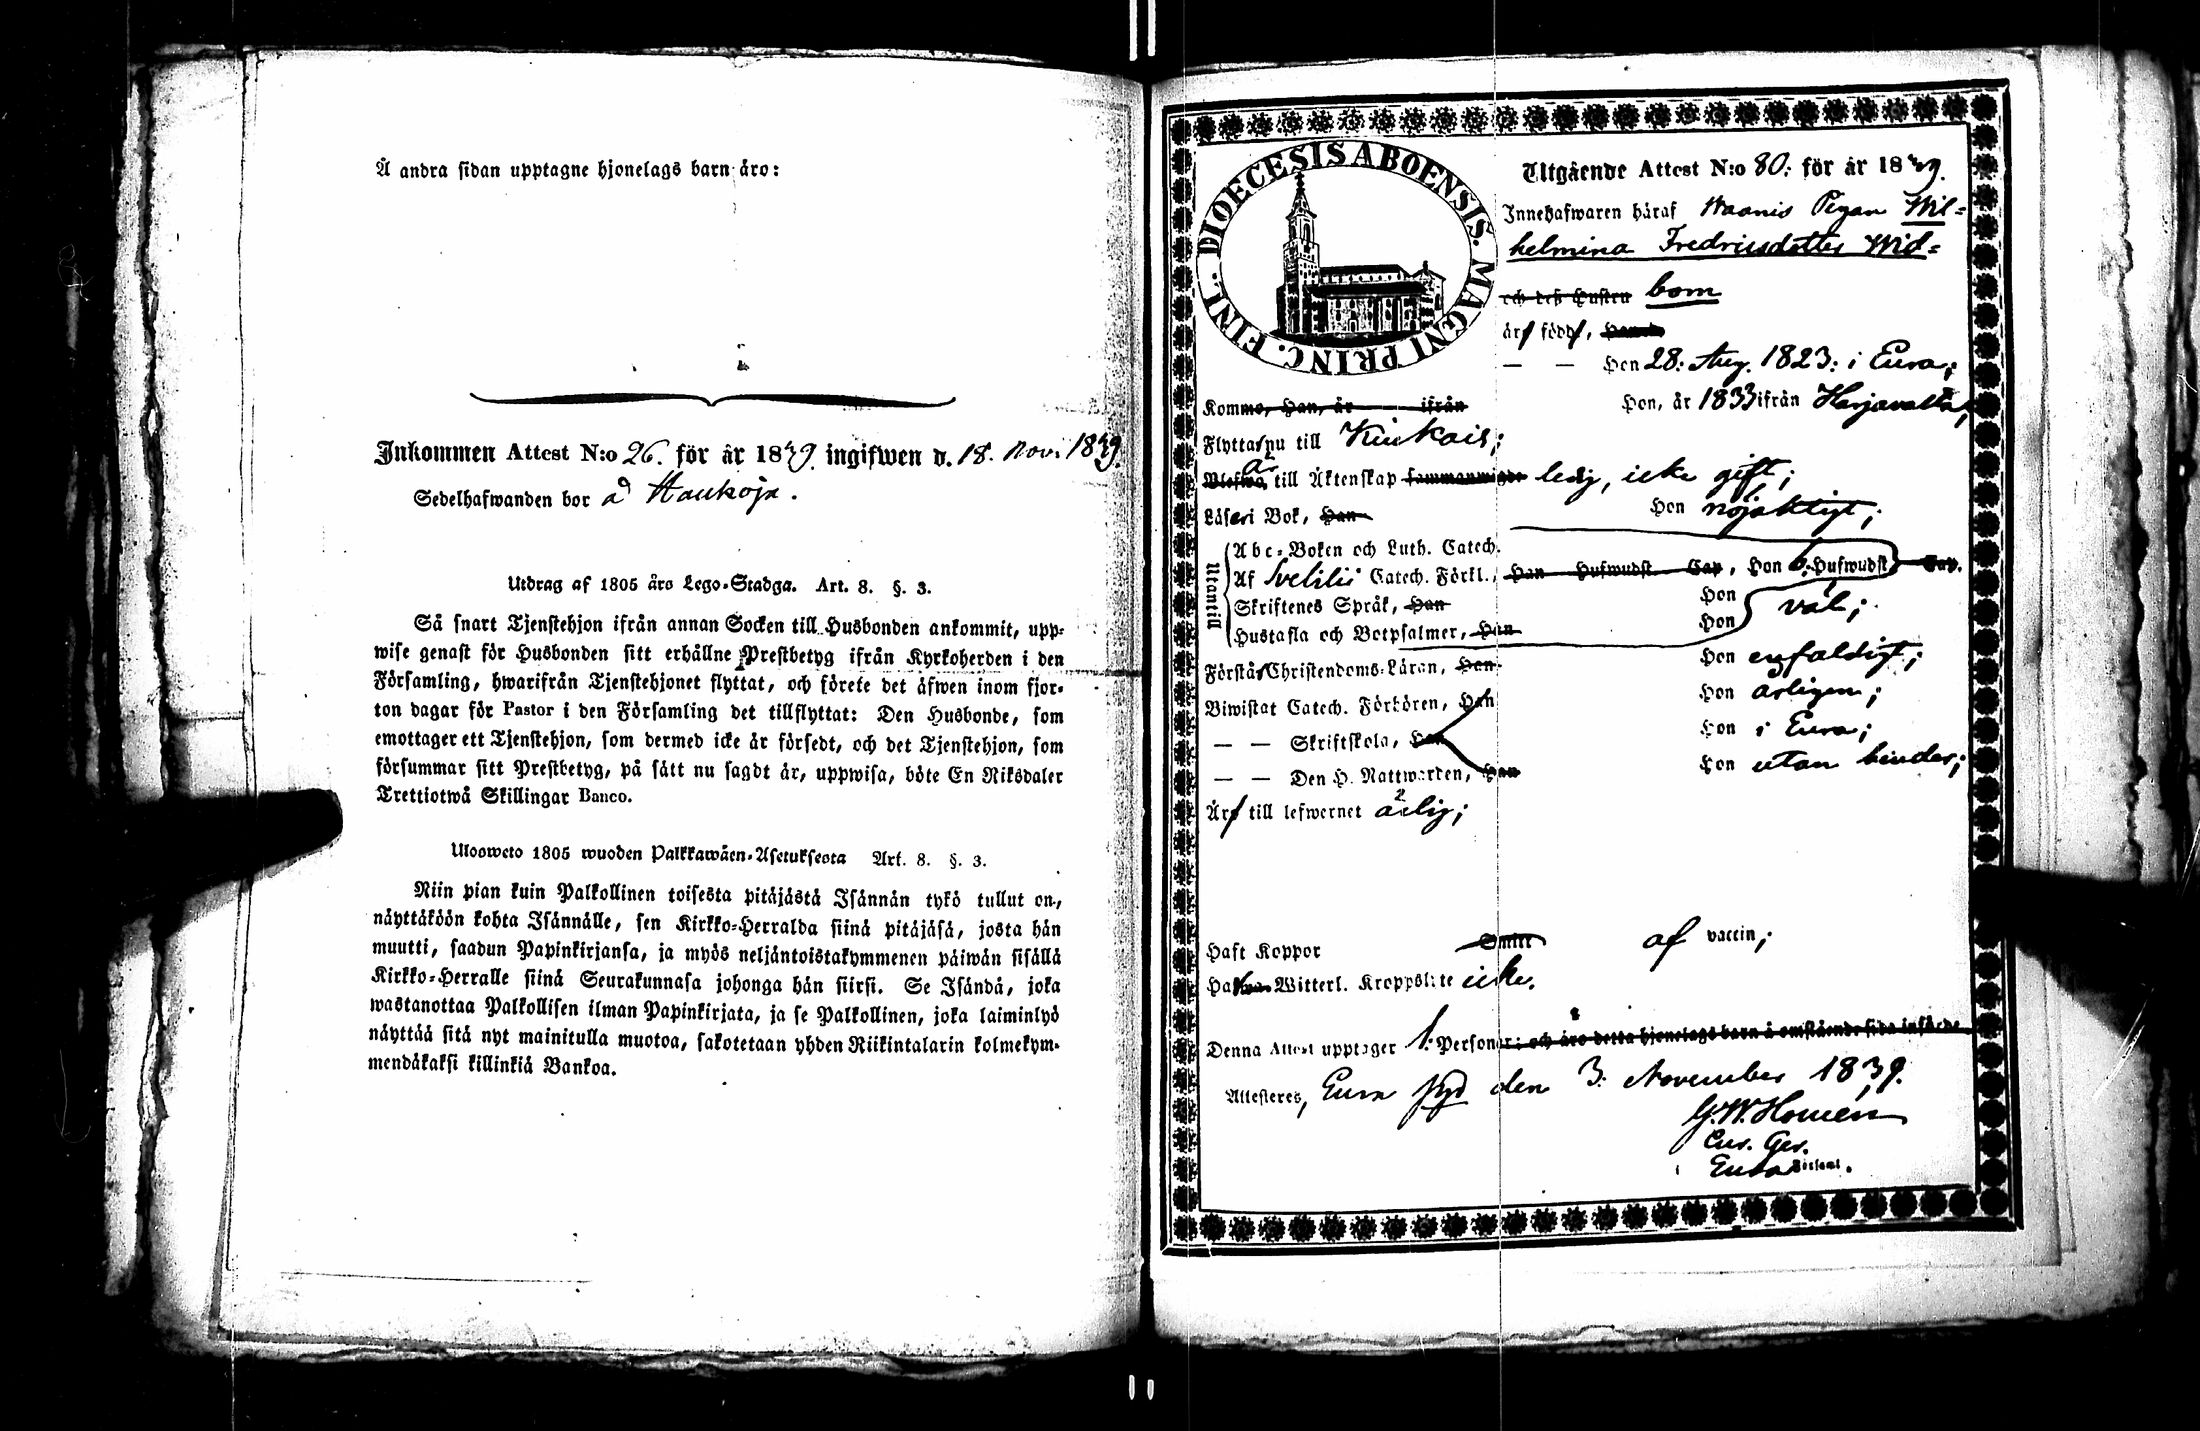 Å andra sidan upptagne hjonelags barn äro:
Inkommen Attest N:o 26. för år 1839. ingifwen d. 18. Nov. 1839.
Sedelhafwanden bor å Haukoja.
Utdrag af 1805 års Lego-Stadga. Art. 8. §. 3.
Så snart Tjenstehjon ifrån annan Socken till Husbonden ankommit, upp-
wise genast för Husbonden sitt erhållne Prestbetyg ifrån Kyrkoherden i den
Församling, hwarifrån Tjenstehjonet flyttat, och förete det äfwen inom fjor-
ton dagar för Pastor i den Församling det tillflyttat: Den Husbonde, som
emottager ett Tjenstehjon, som dermed icke är försedt, och det Tjenstehjon, som
försummar sitt Prestbetyg, på sätt nu sagdt är, uppwisa, böte En Riksdaler
Trettiotwå Skillingar Banco.
Ulosweto 1805 wuoden Palkkawäen-Asetuksesta Art. 8. §. 3.
Niin pian kuin Palkollinen toisesta pitäjästä Isännän tykö tullut on,
näyttäköön kohta Isännälle, sen Kirkko-Herralda siinä pitäjäsä, josta hän
muutti, saadun Papinkirjansa, ja myös neljäntoistakymmenen päiwän sisällä
Kirkko-Herralle siinä Seurakunnasa johonga hän siirsi. Se Isändä, joka
wastanottaa Palkollisen ilman Papinkirjata, ja se Palkollinen, joka laiminlyö
näyttää sitä nyt mainitulla muotoa, sakotetaan yhden Riikintalarin kolmekym-
mendäkaksi killinkiä Bankoa.
DIOECESIS ABOENSIS. MAGNI PRINC. FINL.
Utgående Attest N:o 80: för år 1839.
Innehafwaren häraf Pigan Wil-
helmina Fredricsdotter Wid-
och dess Hustru bom
är född, Han
— — Hon 28: Aug. 1823: i Eura;
Komme, Han, år ifrån Hon, år 1833 ifrån Harjavalta,
Flytta nu till Kiukais;
är till Äktenskap sammanwigde ledig, icke gift;
Läser i Bok, Han Hon nöjaktigt;
Utantill
Abc-Boken och Luth. Catech.
Af Svebilii Catech. Förkl., Han Hufwudst. Cap, Hon 6. Hufwudst. Cap.
Skriftenes Språk, Han Hon väl;
Hustafla och Botpsalmer, Han Hon
Förstår Christendoms-Läran, Han Hon enfaldigt;
Biwistat Catech. Förhören, Han Hon årligen;
— — Skriftskola, Han Hon i Eura;
— — Den H. Nattwarden, Han Hon utan hinder;
Är till lefwernet ärlig;
Haft Koppor Smitt af vaccin;
Witterl. Kroppslyte icke.
Denna Attest upptager 1. Personer: och äro detta hjonelags barn å omstående sida införde.
Attesteres, Eura den 3. November 1839.
G. W. Homén
Eura Församl.